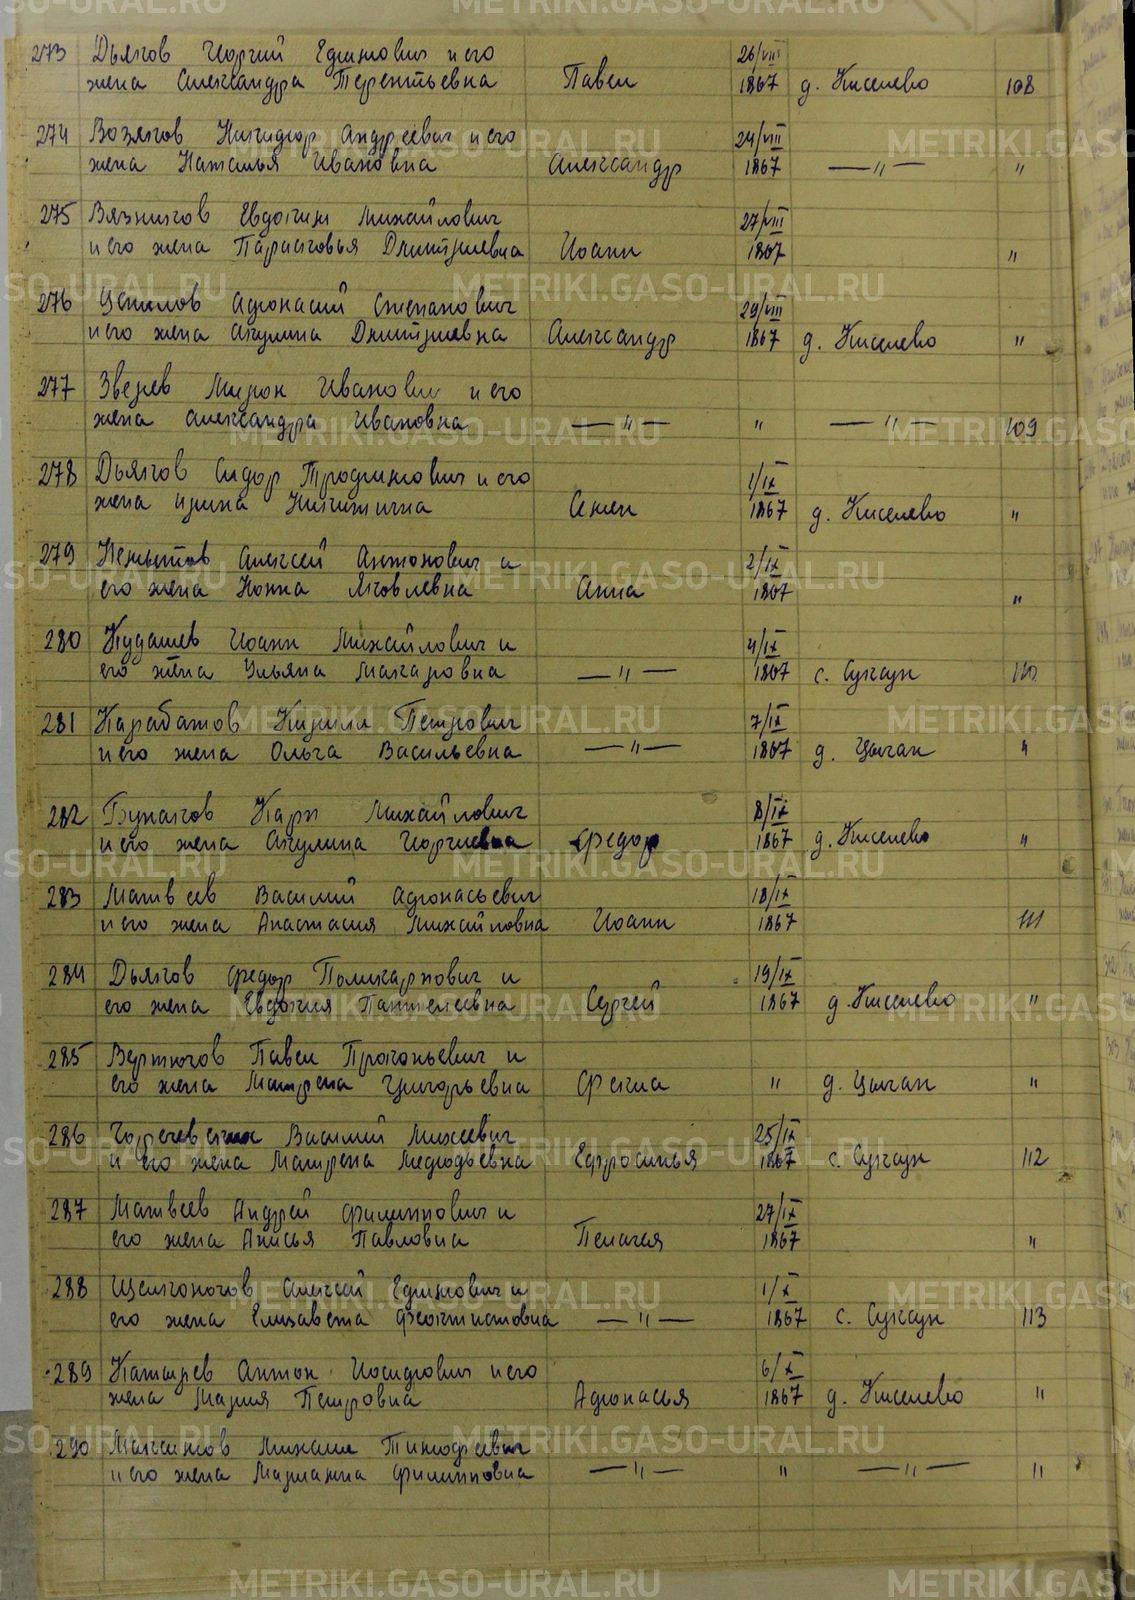 273 Дьячов Георгий Ефимович и его
жена Александра Терентьевна Павел 26/VIII 1867 д. Киселево 108
274 Возяков Никифор Андреевич и его
жена Наталья Ивановна Александр 24/VIII 1867 —〃— 〃
275 Вязников Евдоким Михайлович
и его жена Парасковья Дмитриевна Иоанн 27/VIII 1867 〃
276 Афонасий Степанович
и его жена Акулина Дмитриевна Александр 29/VIII 1867 д. Киселево 〃
277 Зверев Мирон Иванович и его
жена Александра Ивановна —〃— 〃 —〃— 109
278 Дьячов Сидор Трофимович и его
жена Ирина Никитична Семен 1/IX 1867 д. Киселево 〃
279 Алексей Антонович и
его жена Нонна Яковлевна Анна 2/IX 1867 〃
280 Кудашев Иоанн Михайлович и
его жена Ульяна Макаровна —〃— 4/IX 1867 с. Суксун 110
281 Карабатов Кирилл Петрович
и его жена Ольга Васильевна —〃— 7/IX 1867 д. Цыган 〃
282 Бунаков Карп Михайлович
и его жена Акулина Георгиевна Федор 8/IX 1867 д. Киселево 〃
283 Матвеев Василий Афонасьевич
и его жена Анастасия Михайловна Иоанн 18/IX 1867 111
284 Дьячов Федор Поликарпович и
его жена Евдокия Пантелеевна Сергей 19/IX 1867 д. Киселево 〃
285 Вертячов Павел Прокопьевич и
его жена Матрена Григорьевна Фекла 〃 д. Цыган 〃
286 Василий Михеевич
и его жена Матрена Мефодьевна Ефросинья 25/IX 1867 с. Суксун 112
287 Матвеев Андрей Филиппович и
его жена Анисья Павловна Пелагея 27/IX 1867 〃
288 Щелконогов Алексей Ефимович и
его жена Елизавета Феоктистовна —〃— 1/X 1867 с. Суксун 113
289 Антон Иосифович и его
жена Мария Петровна Афонасья 6/X 1867 д. Киселево 〃
290 Михаил Тимофеевич
и его жена Марианна Филипповна —〃— 〃 —〃— 〃
METRIKI.GASO-URAL.RU